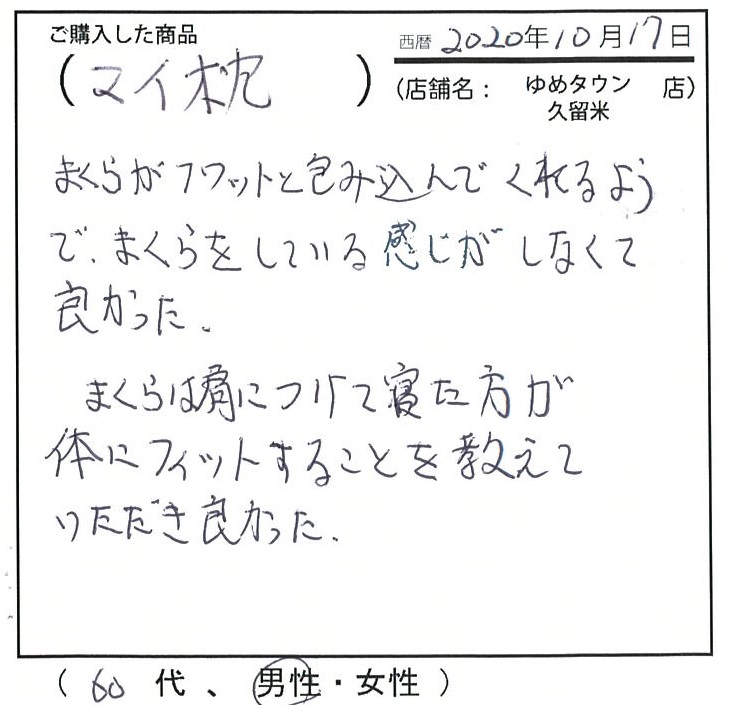 ご購入した商品
(マイ枕)
西暦 2020年10月17日
(店舗名： ゆめタウン久留米 店)
まくらがフワットと包み込んでくれるよう
で、まくらをしている感じがしなくて
良かった。
まくらは肩につけて寝た方が
体にフィットすることを教えて
いただき良かった。
( 60 代 、 男性・女性 )